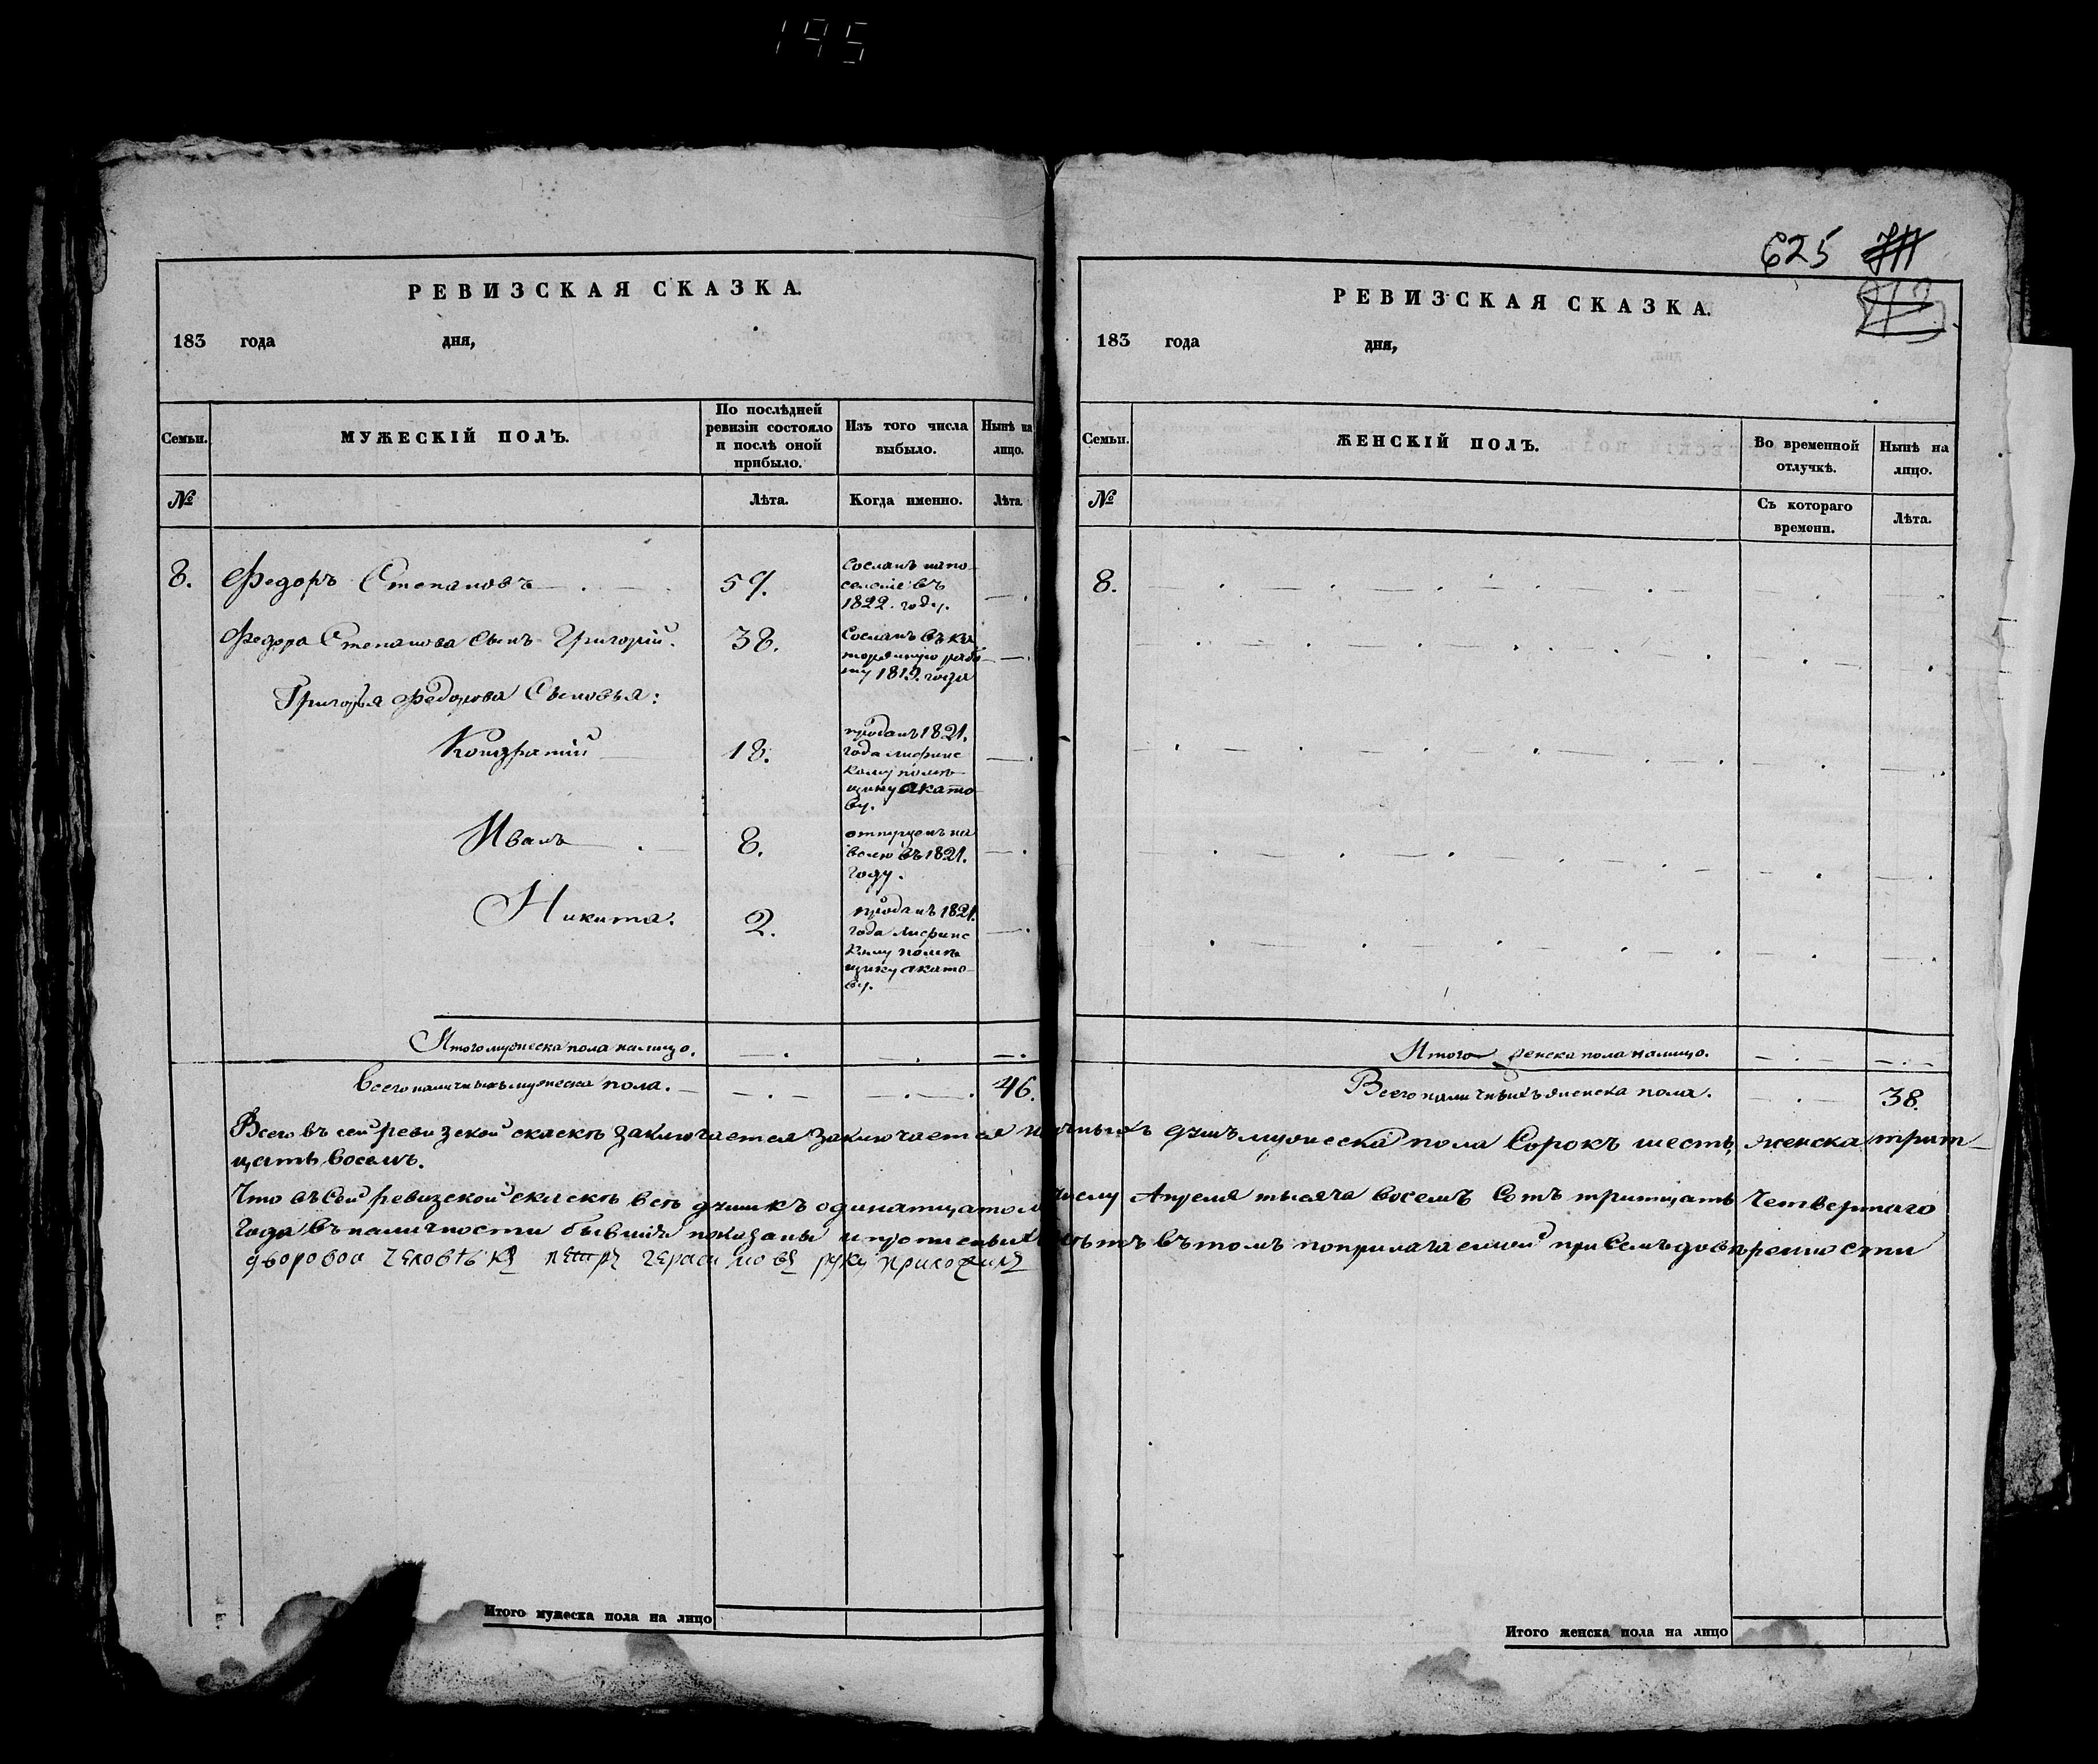 195
РЕВИЗСКАЯ СКАЗКА.
183 года дня,
Семьи.
МУЖЕСКІЙ ПОЛЪ.
По послѣдней
ревизіи состояло
и послѣ оной
прибыло.
Изъ того числа
выбыло.
Нынѣ на
лицо.
№
Лѣта.
Когда именно.
Лѣта.
8. Федоръ Степановъ 57.
Сосланъ на по
селеніе въ
1822. году.
Федора Степанова сынъ Григорій. 38.
Сосланъ въ ка
торжную рабо
ту 1819. года
Григорья Федорова Сыновья:
Кондратій 18.
проданъ 1821.
года
кому помѣ
щику Акато
ву.
Иванъ 8.
отпущенъ на
волю въ 1821.
году.
Никита. 2.
проданъ 1821.
года
кому помѣ
щику Акато
ву.
Итого мужеска пола на лицо.
Всего наличныхъ мужеска пола. 46.
625
РЕВИЗСКАЯ СКАЗКА.
183 года дня,
Семьи.
ЖЕНСКІЙ ПОЛЪ.
Во временной
отлучкѣ.
Нынѣ на
лицо.
№
Съ котораго
времени.
Лѣта.
8.
Итого женска пола налицо.
Всего наличныхъ женска пола. 38.
Всего въ сей ревизской скаскѣ заключается заключается душъ мужеска пола Сорокъ шесть, женска трит
цать восемъ.
Что въ Сей ревизской скаскѣ всѣ души къ одинатцатому числу Апреля тысяча восемъ Сотъ тритцать Четвертаго
Года въ наличности бывшія показаны и прописныхъ нѣтъ въ томъ по прилагаемой при Семъ довѣренности
дворовой человѣкъ Петръ Герасимовъ руку приложилъ
Итого мужеска пола на лицо
Итого женска пола на лицо